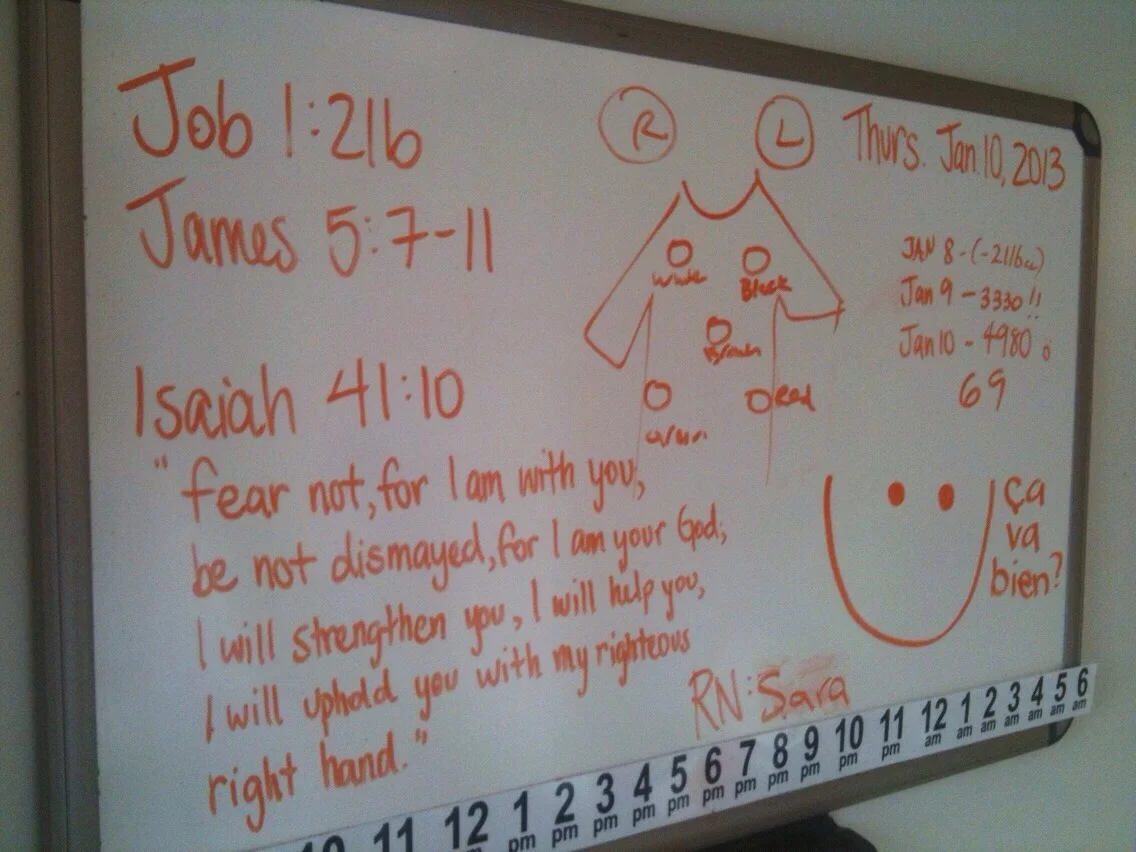 Job 1:21b
James 5:7-11
Isaiah 41:10
"fear not, for I am with you,
be not dismayed, for I am your God;
I will strengthen you, I will help you,
I will uphold you with my righteous
right hand."
R L
White Black
Brown
Green Red
Thurs. Jan. 10, 2013
Jan 9 - 3330 !!
Jan 10 - 4980
69
ça
va
bien?
RN: Sara
10 11 12 1 pm 2 pm 3 pm 4 pm 5 pm 6 pm 7 pm 8 pm 9 pm 10 pm 11 pm 12 am 1 am 2 am 3 am 4 am 5 am 6 am